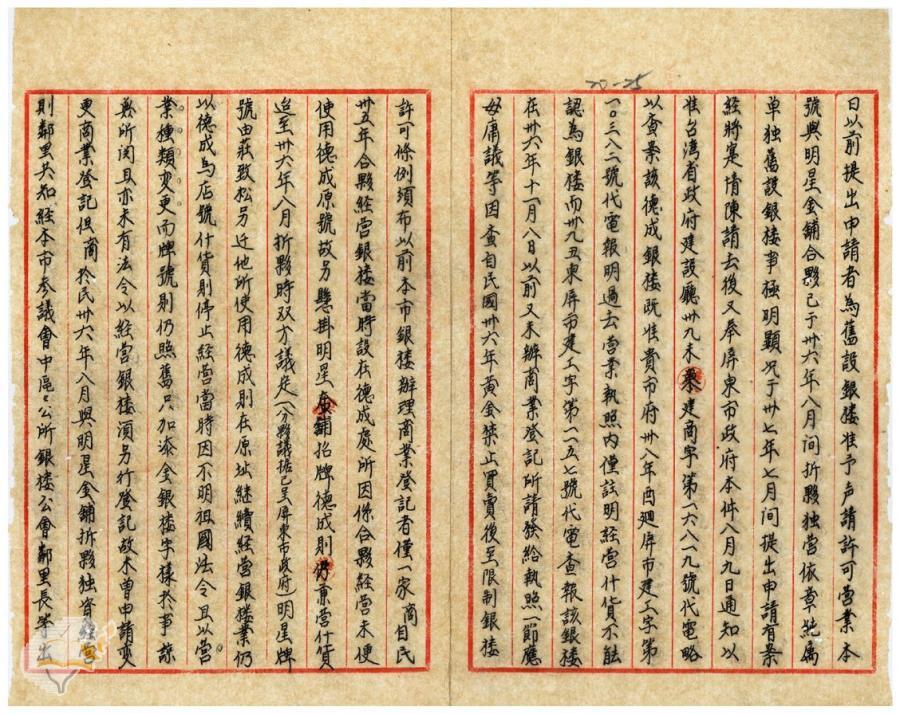 20-25
日以前提出申請者為舊設銀楼准予声請許可營業本
號與明星金鋪合夥已于卅六年八月间折夥独营依章純属
单独舊設銀楼事極明顯况于卅七年七月间提出申請有案
經將寔情陳請去後又奉屏東市政府本件八月九日通知以
准台湾省政府建設廳卅九未建商字第一六八一九號代電略
以查景該德成銀楼既准貴市府卅八年酉廻屏市建工字第
一〇三八二號代電報明過去营業執照内僅註明經营什貨不能
認為銀楼而卅九五東屏市建工字第一一五七號代電查報該銀楼
在卅六年十一月八日以前又未辦商業登記所請發給執照一節應
毋庸議等因查自民國卅六年黃金禁止買賣後至限制銀楼
許可條例頒布以前本市銀楼辦理商業登記者僅一家商自民
卅五年合夥經营銀楼當時設在德成處所因係合夥經营未便
使用德成原號故另懸掛明星金鋪招牌德成則兼营什貨
迨至卅六年八月折夥時双方議定(分夥議据已呈屏東市政府)明星牌
號由莊致松另迁他所使用德成則在原址継續經营銀楼業仍
以德成為店號什貨則停止經营當時因不明祖國法令且以营
業種類变更而牌號則仍照舊只加添金銀楼字樣於事諒
無所関且亦未有法令以經营銀楼須另行登記故未曽申請变
更商業登記但商於民卅六年八月與明星金鋪折夥独資經营
則鄰里共知經本市参議會中區區公所銀楼公會鄰里長等出